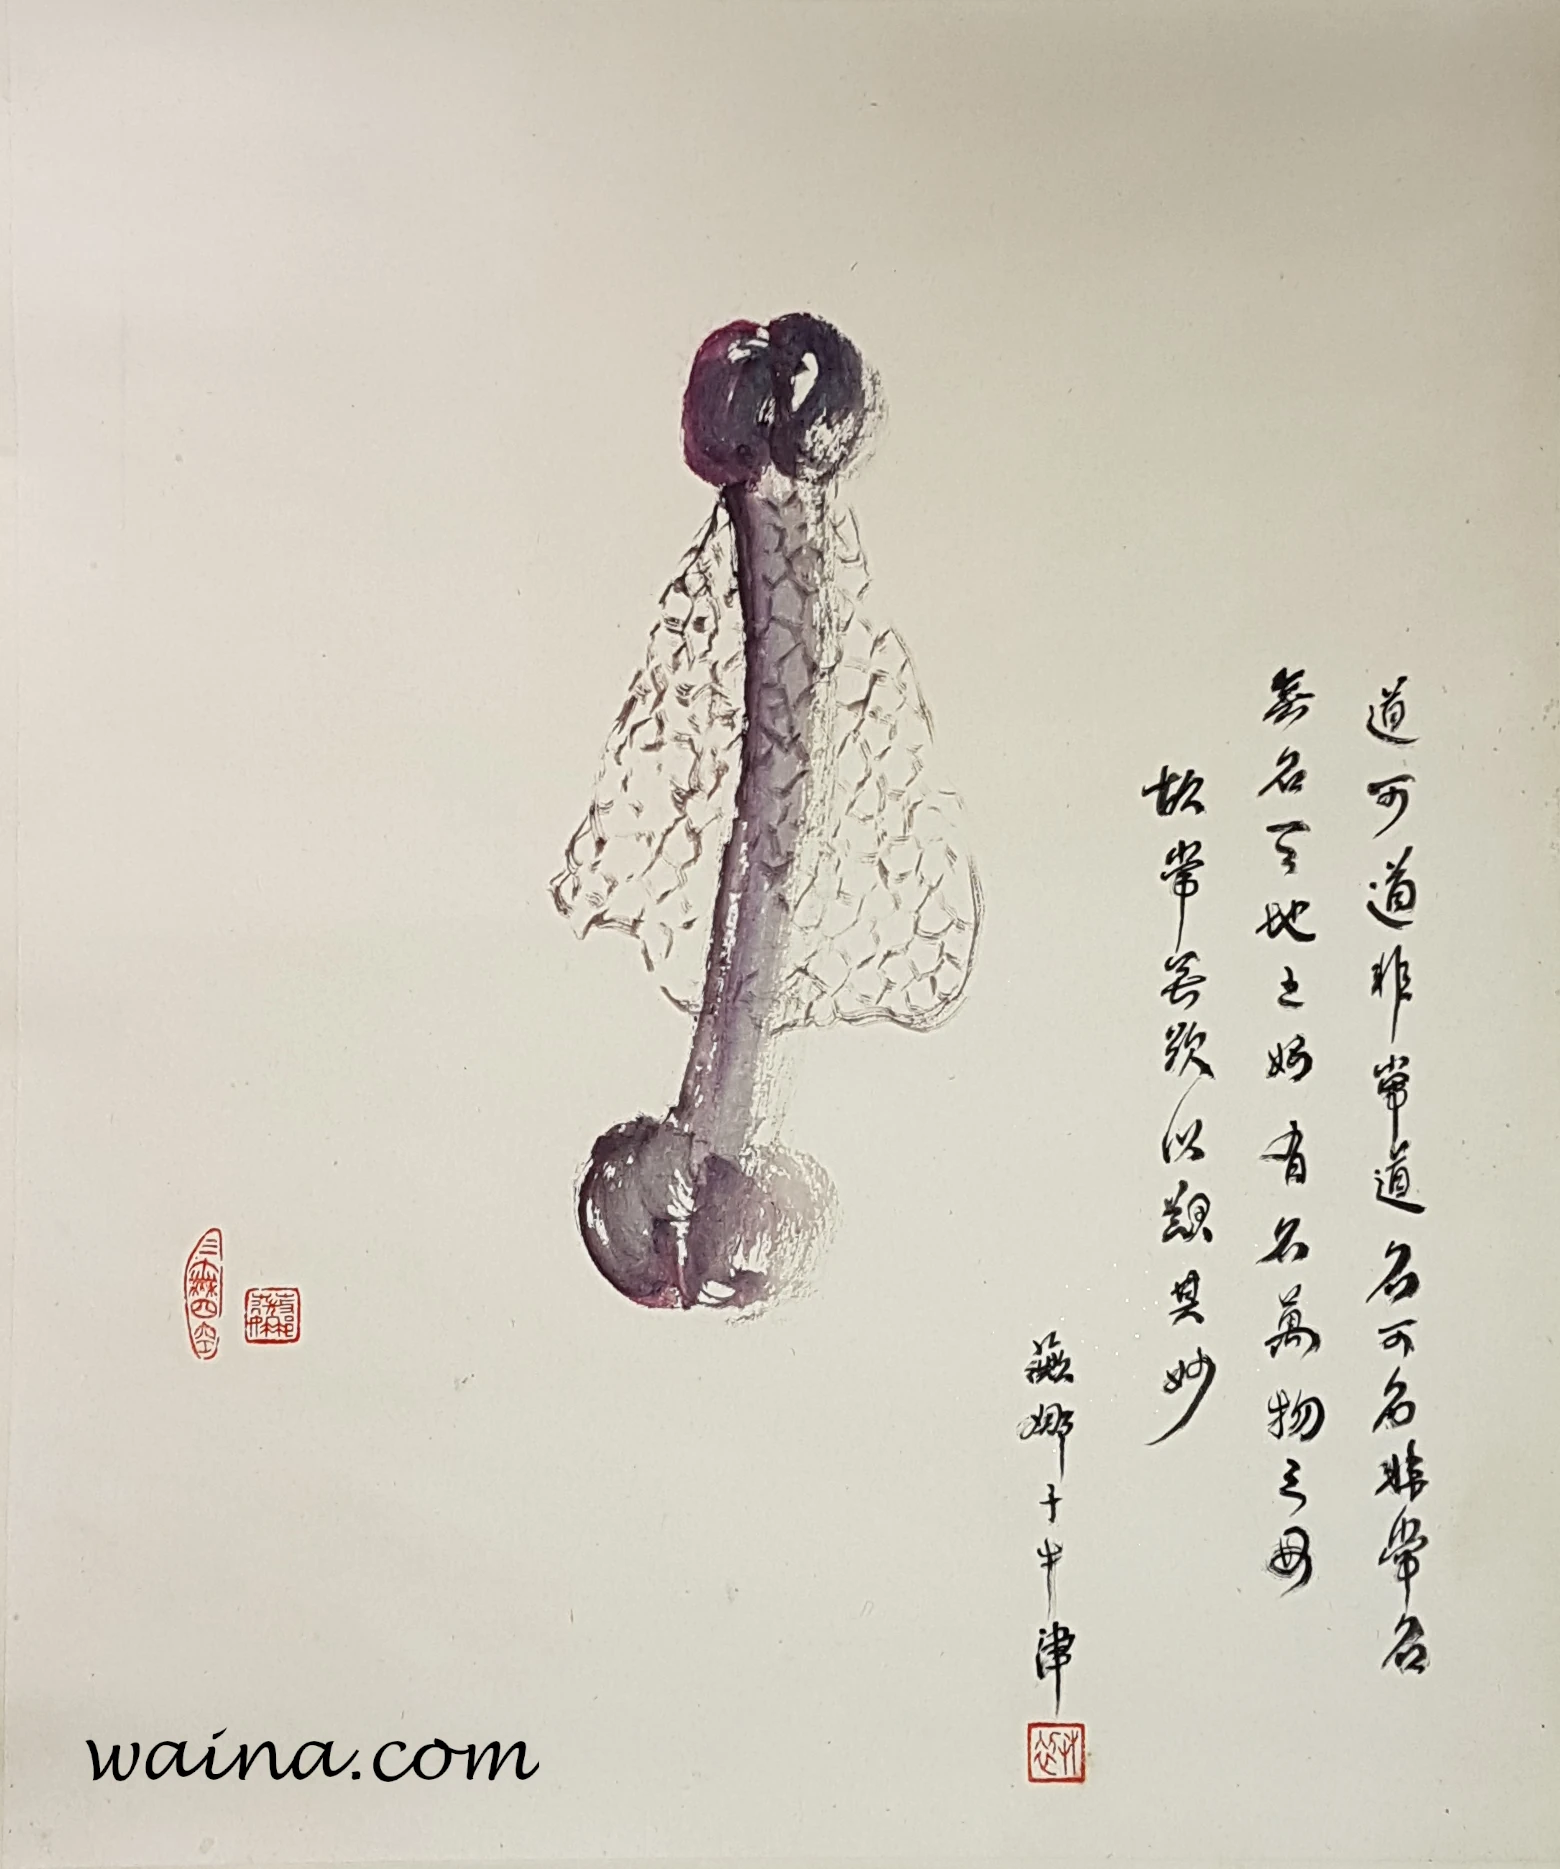 道可道非常道名可名非常名
無名天地之始有名萬物之母
故常無欲以觀其妙
蕪娜于牛津
三無四空
waina.com